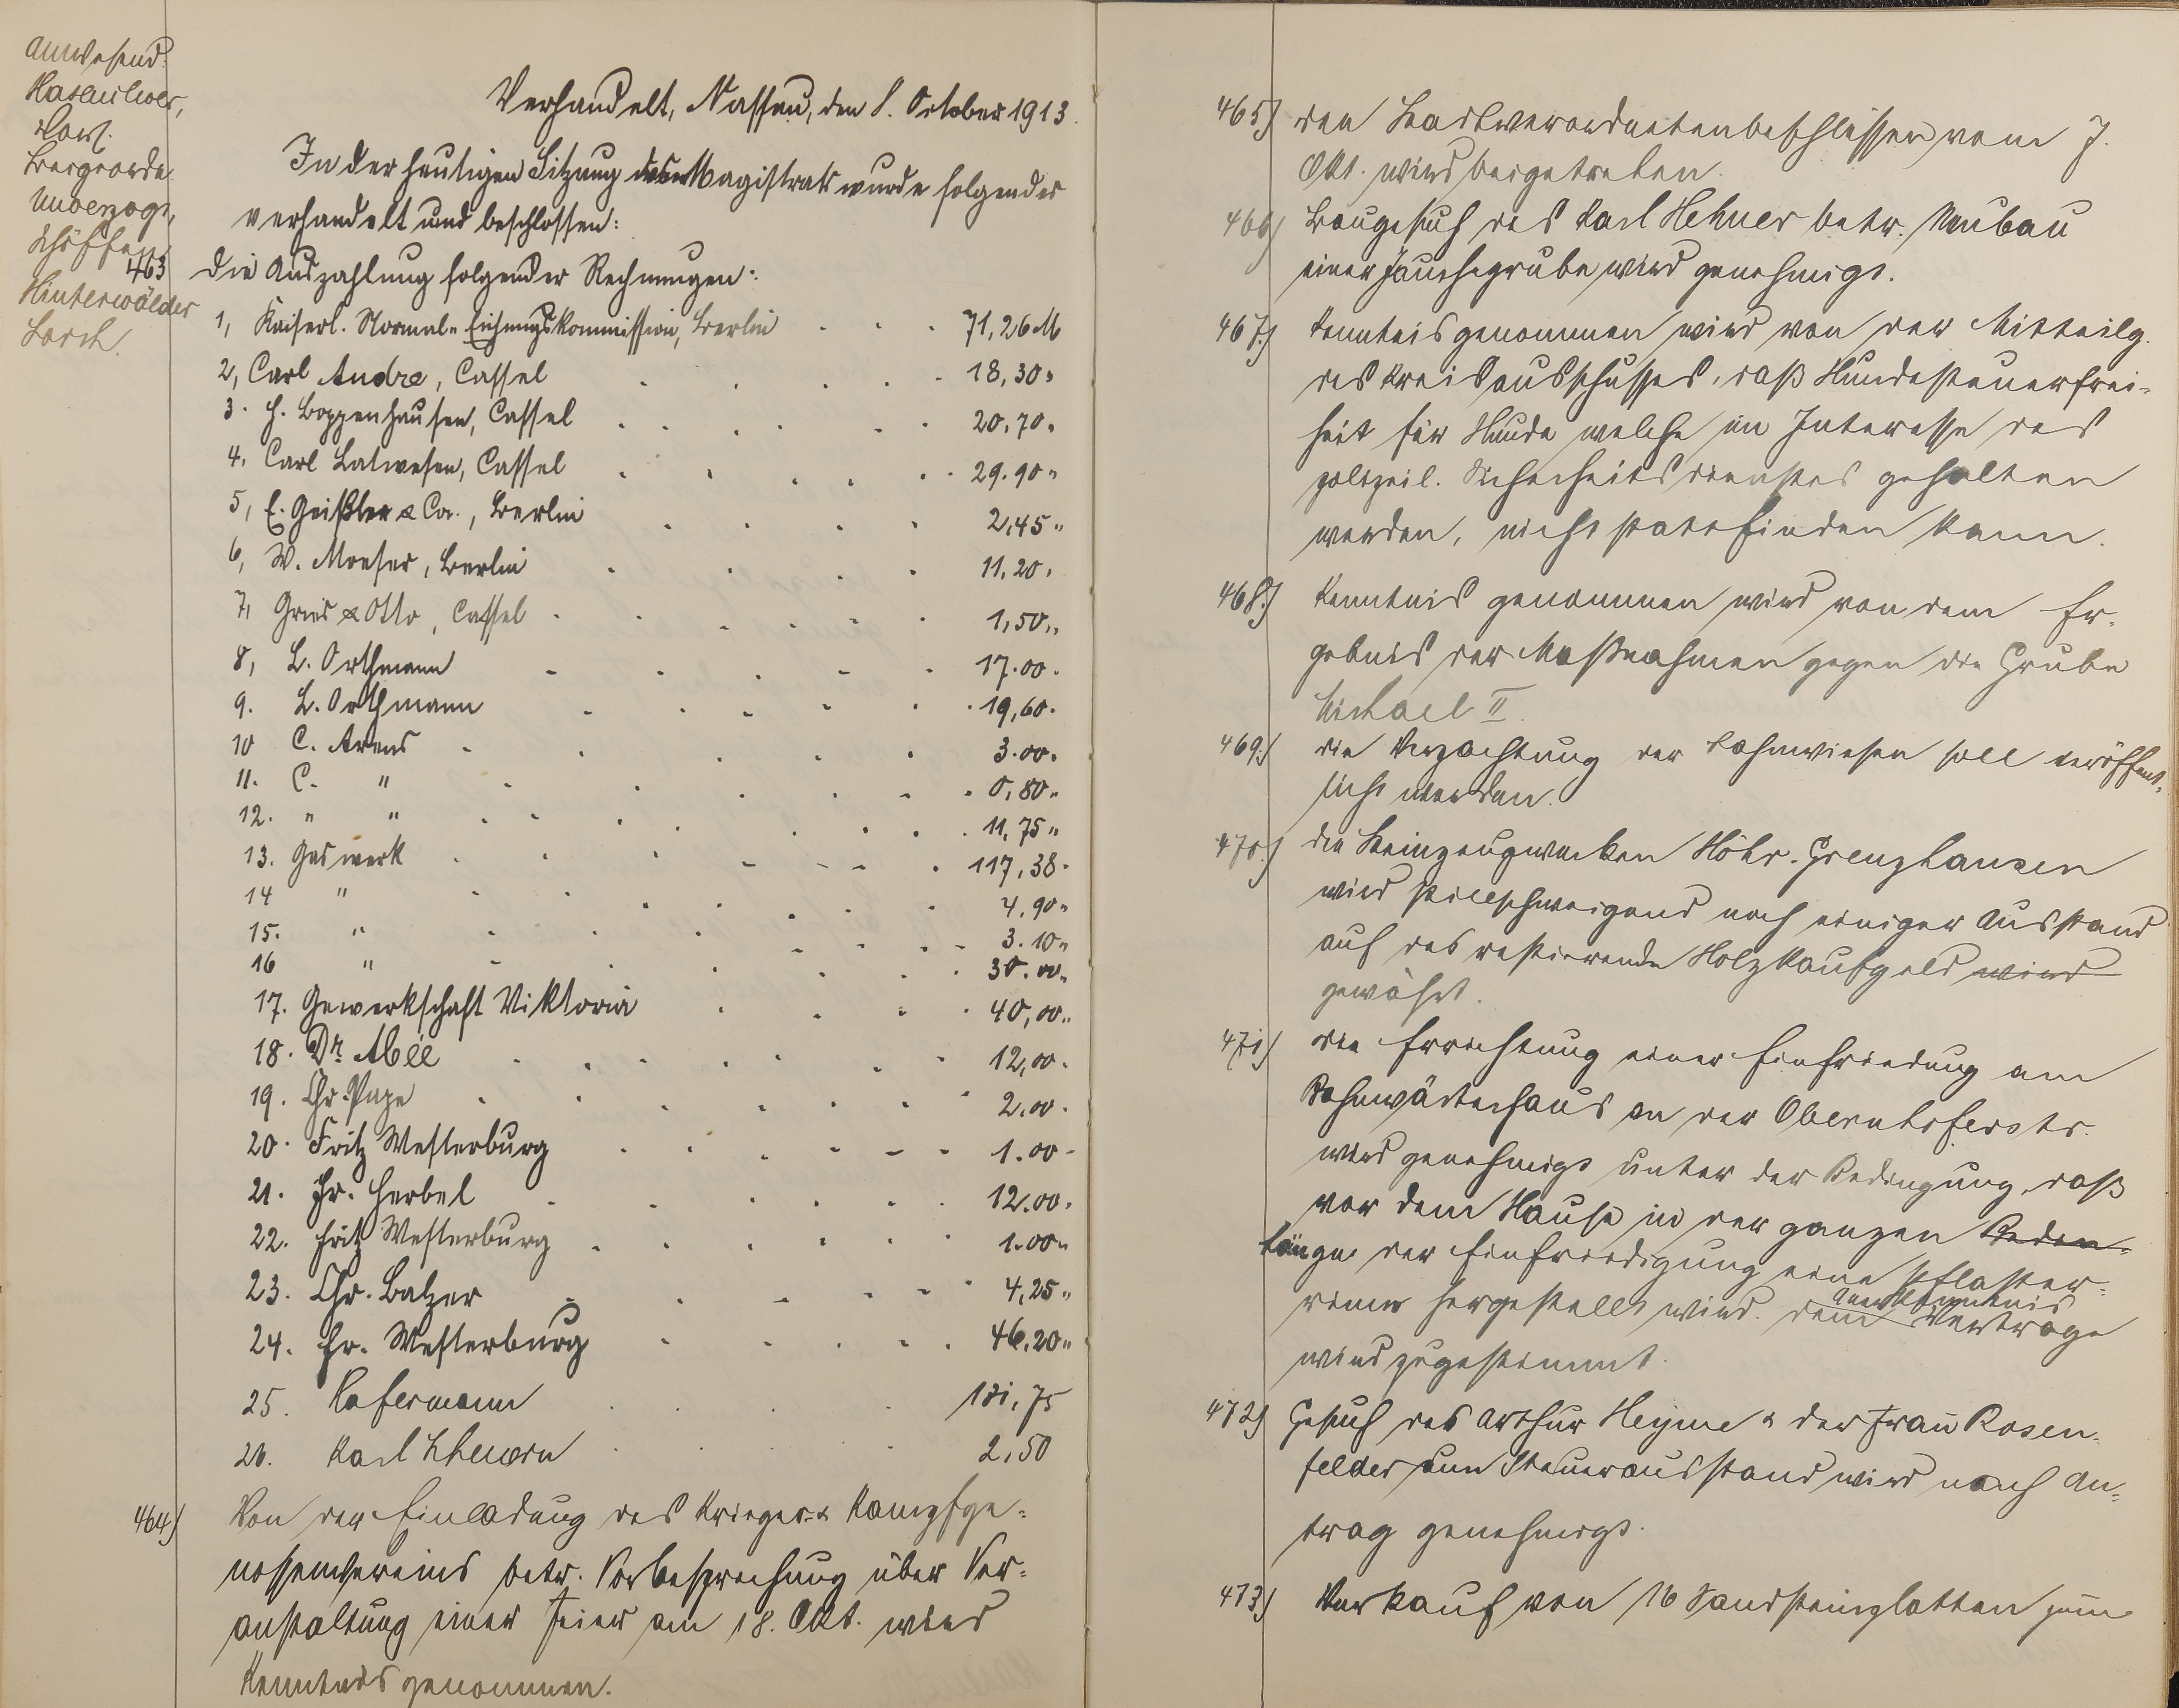 Anwesend:
Hasenclever,
Vors.
Beigeordn.
Unverzagt,
Schöffen
Hinterwälder
Lorch.
Verhandelt, Nassau, den 8. October 1913.
In der heutigen Sitzung des Magistrats wurde folgendes
verhandelt und beschlossen:
463 Die Auszahlung folgender Rechnungen:
1, Kaiserl. Normal-Eichungskommission, Berlin 71,26 M
2, Carl Andre, Cassel 18,30 "
3. H. Boppenhausen, Cassel 20,70 "
4. Carl Latwesen, Cassel 29.90 "
5, E. Geißler & Co., Berlin 2,45 "
6, W. Moeser, Berlin 11,20 "
7, Gries & Otto, Cassel 1,50 "
8, L. Orthmann 17.00 "
9. L. Orthmann 19,60 "
10 C. Arens 3.00 "
11. C. " 0,80 "
12. " " 11,75 "
13. Gaswerk 117,38 "
14 " 4,90 "
15. " 3.10 "
16 " 30.00 "
17. Gewerkschaft Viktoria 40,00 "
18. Dr. Abée 12,00 "
19. Chr. Pape 2.00 "
20. Fritz Westerburg 1.00 "
21. Fr. Herbel 12.00 "
22. Fritz Westerburg 1.00 "
23. Chr. Balzer 4,25 "
24. Fr. Westerburg 46.20 "
25. Hafermann 181,75
26. Karl 2,50
464) Von der Einladung des Krieger- & Kampfge-
nossenvereins betr. Vorbesprechung über Ver-
anstaltung einer Feier am 18. Okt. wird
Kenntnis genommen.
465) den Stadtverordnetenbeschlüssen vom 7.
Okt. wird beigetreten.
466) Baugesuch des Karl Hehner betr. Neubau
einer Jauchegrube wird genehmigt.
467.) Kenntnis genommen wird von der Mitteilg.
des Kreisausschusses, daß Hundesteuerfrei-
heit für Hunde welche im Interesse des
polizeil. Sicherheitsdienstes gehalten
werden, nicht stattfinden kann.
468.) Kenntnis genommen wird von dem Er-
gebnis der Maßnahmen gegen die Grube
Michael II.
469.) die Verpachtung der Lahnwiesen soll veröffent-
licht werden.
470.) den Steinzeugwerken Höhr-Grenzhausen
wird stillschweigend noch einiger Ausstand
auf das restierende Holzkaufgeld wird
gewährt.
471) die Errichtung einer Einfriedung am
Bahnwärterhaus an der Obernhoferstr.
wird genehmigt unter der Bedingung, daß
vor dem Hause in der ganzen Beden-
länge der Einfriedigung eine Pflaster-
rinne hergestellt wird. dem Vertrage
Anerkenntnis
wird zugestimmt.
472) Gesuch des Arthur Heyme & der Frau Rosen-
felder um Steuerausstand wird nach An-
trag genehmigt.
473) Verkauf von 16 Sandsteinplatten zum